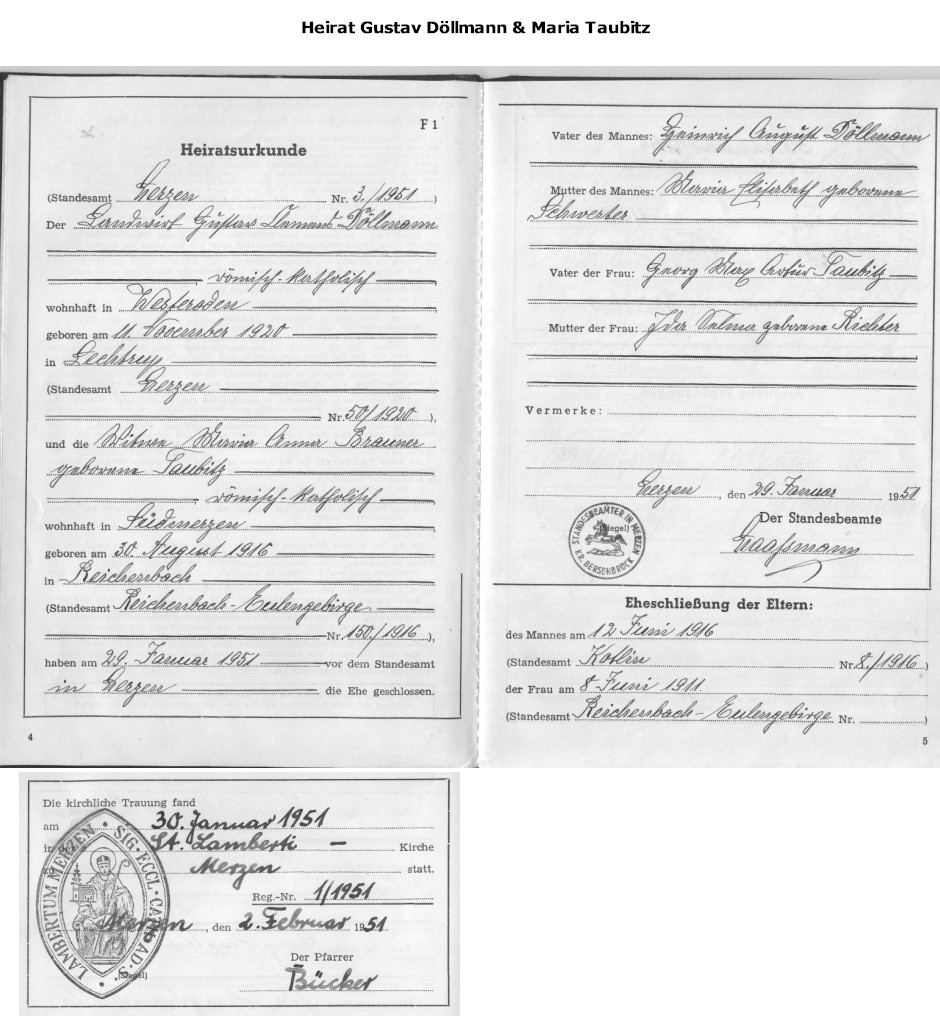 Heirat Gustav Döllmann & Maria Taubitz
F 1
Heiratsurkunde
(Standesamt Merzen Nr. 3./1951)
Der Landwirt Gustav Clemens Döllmann
römisch-katholisch
wohnhaft in Westeroden
geboren am 11. November 1920
in Lechtrup
(Standesamt Merzen
Nr. 50/1920),
und die Witwe Maria Anna Brauner
geborene Taubitz
römisch-katholisch
wohnhaft in Südmerzen
geboren am 30. August 1916
in Reichenbach
(Standesamt Reichenbach-Eulengebirge
Nr. 150./1916),
haben am 29. Januar 1951 vor dem Standesamt
in Merzen die Ehe geschlossen.
4
Vater des Mannes: Heinrich August Döllmann
Mutter des Mannes: Maria Elisabeth geborene
Schwerter
Vater der Frau: Georg Max Artur Taubitz
Mutter der Frau: Ida Selma geborene Richter
Vermerke:
Merzen, den 29. Januar 1951
(Siegel)
STANDESBEAMTER IN MERZEN
KR. BERSENBRÜCK
Der Standesbeamte
Eheschließung der Eltern:
des Mannes am 12 Juni 1916
(Standesamt Nr. 8./1916)
der Frau am 8 Juni 1911
(Standesamt Reichenbach-Eulengebirge Nr. )
5
Die kirchliche Trauung fand
am 30. Januar 1951
in der St. Lamberti – Kirche
Merzen statt.
Reg.-Nr. 1/1951
Merzen, den 2. Februar 1951
Der Pfarrer
(Siegel)
Bücker
SIG. ECCL. CATH. AD S. LAMBERTUM MERZEN